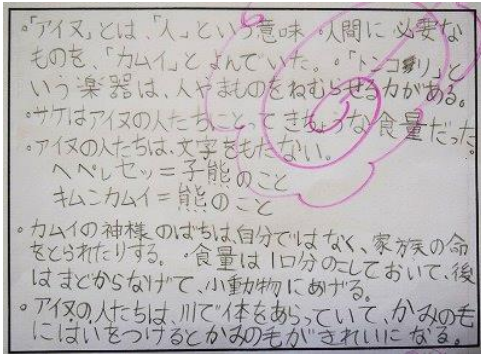 。「アイヌ」とは、「人」という意味。人間に必要な
ものを、「カムイ」とよんでいた。。「トンコリ」と
いう楽器は、人やまものをねむらせる力がある。
。サケはアイヌの人たちにとってきちょうな食量だった。
。アイヌの人たちは、文字をもたない。
ヘペレセッ=子熊のこと
キムンカムイ=熊のこと
。カムイの神様のばちは、自分ではなく、家族の命
をとられたりする。。食量は1口分のこしておいて、後
はまどからなげて、小動物にあげる。
。アイヌの人たちは、川で体をあらっていて、かみの毛
にはいをつけるとかみの毛がきれいになる。